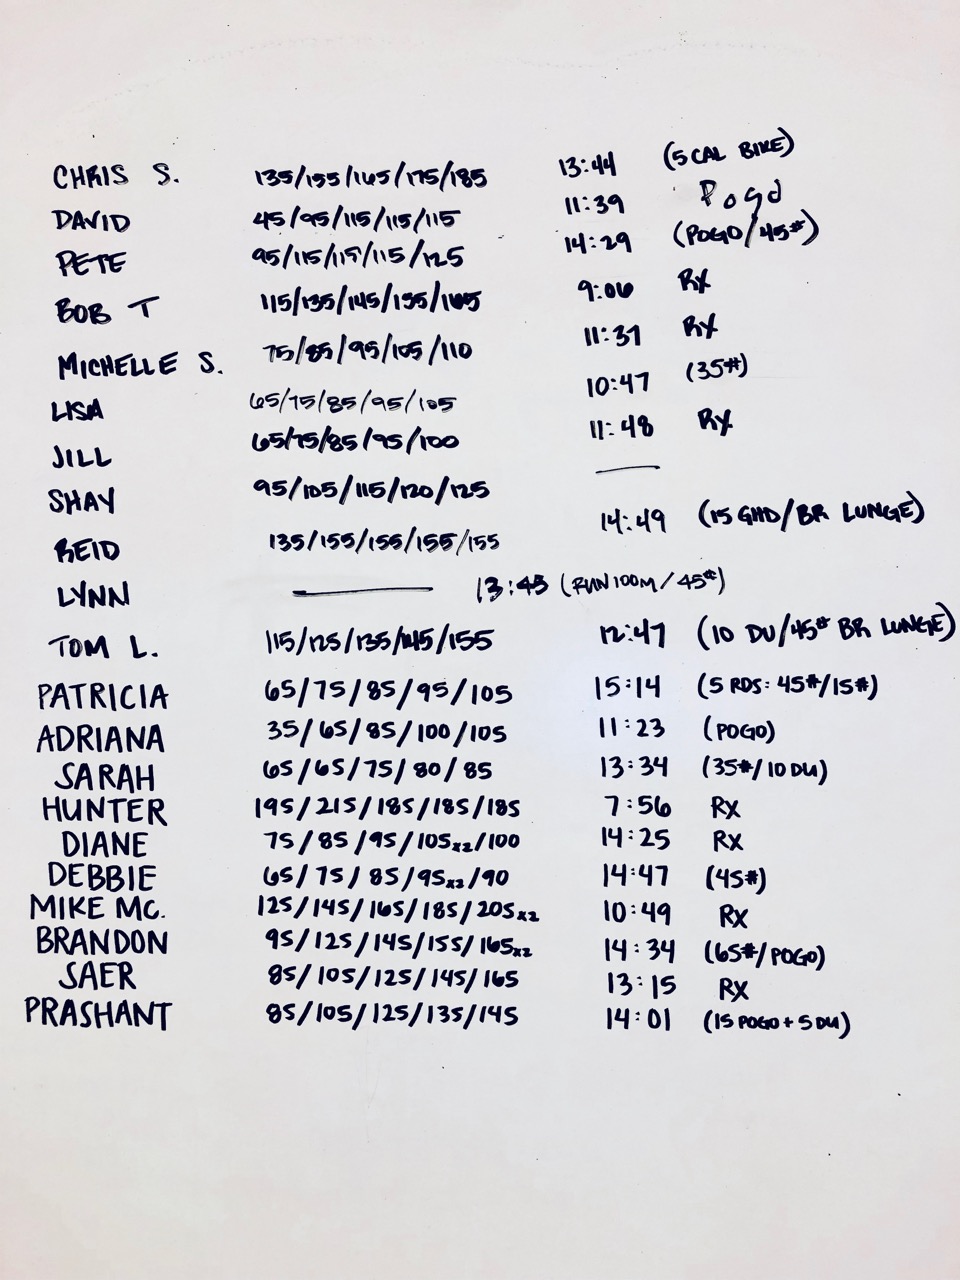 CHRIS S. 135/155/165/175/185 13:44 (5 CAL BIKE)
DAVID 45/95/115/115/115 11:39 Pogo
PETE 95/115/115/115/125 14:29 (POGO/45#)
BOB T 115/135/145/155/165 9:06 RX
MICHELLE S. 75/85/95/105/110 11:37 RX
LISA 65/75/85/95/105 10:47 (35#)
JILL 65/75/85/95/100 11:48 RX
SHAY 95/105/115/120/125 —
REID 135/155/155/155/155 14:49 (15 GHD/BR LUNGE)
LYNN — 13:45 (RUN 100M/45#)
TOM L. 115/125/135/145/155 12:47 (10 DU/45# BR LUNGE)
PATRICIA 65/75/85/95/105 15:14 (5 RDS: 45#/15#)
ADRIANA 35/65/85/100/105 11:23 (POGO)
SARAH 65/65/75/80/85 13:34 (35#/10 DU)
HUNTER 195/215/185/185/185 7:56 RX
DIANE 75/85/95/105x2/100 14:25 RX
DEBBIE 65/75/85/95x2/90 14:47 (45#)
MIKE MC. 125/145/165/185/205x2 10:49 RX
BRANDON 95/125/145/155/165x2 14:34 (65#/POGO)
SAER 85/105/125/145/165 13:15 RX
PRASHANT 85/105/125/135/145 14:01 (15 POGO + 5 DU)